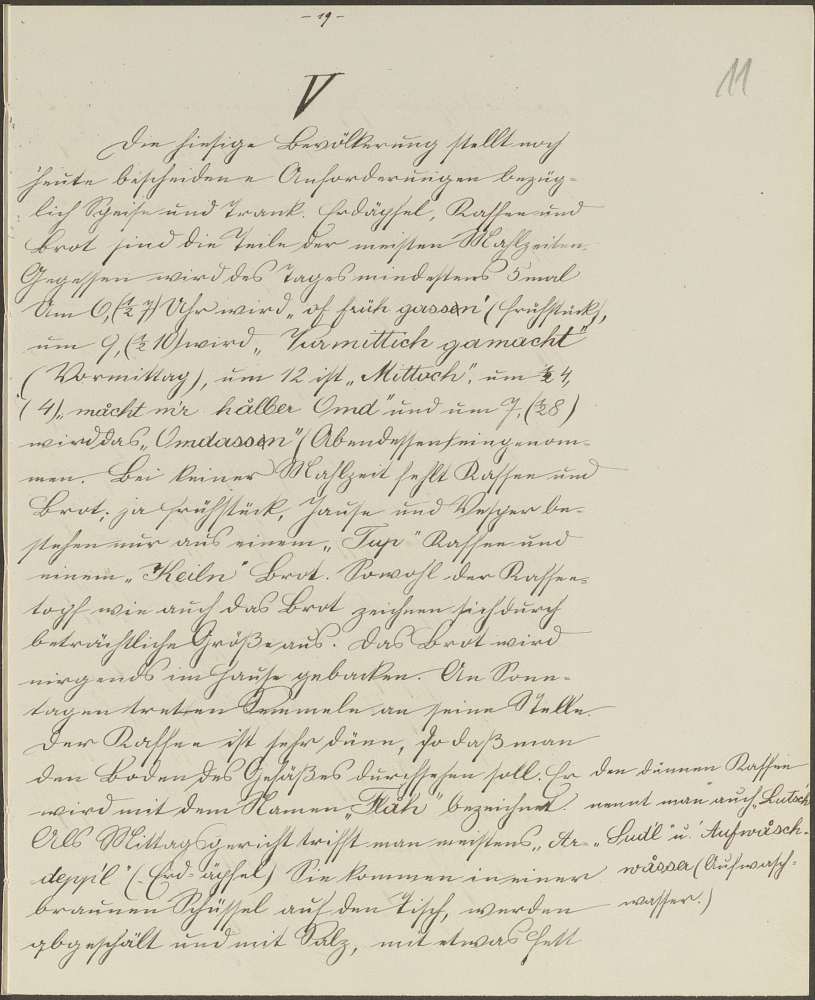 - 19 -
11
V
Die hiesige Bevölkerung stellt noch
heute bescheidene Anforderungen bezüg-
lich Speise und Trank. Erdäpfel, Kaffee und
Brot sind die Teile der meisten Mahlzeiten.
Gegessen wird des Tages mindestens 5 mal
Um 6, (½ 7) Uhr wird „of früh gassen" (Frühstück),
um 9, (½ 10) wird „Vurmittich gamacht"
(Vormittag), um 12 ist „Mittoch", um ½ 4,
(4) „måcht m'r hålber Omd" und um 7, (½ 8)
wird das „Omdassen" (Abendessen) eingenom-
men. Bei keiner Mahlzeit fehlt Kaffee und
Brot; ja Frühstück, Jause und Vesper be-
stehen nur aus einem „Tup" Kaffee und
einem „Keiln" Brot. Sowohl der Kaffee-
topf wie auch das Brot zeichnen sich durch
beträchtliche Größe aus. Das Brot wird
nirgends im Hause gebacken. An Sonn-
tagen treten Semmeln an seine Stelle.
Der Kaffee ist sehr dünn, sodaß man
den Boden des Gefäßes durchsehen soll. Er
wird mit dem Namen „Flåh" bezeichnet.
Als Mittagsgericht trifft man meistens „Ar-
deppl" (Erd-äpfel) Sie kommen in einer
braunen Schüssel auf den Tisch, werden
abgeschält und mit Salz, mit etwas Fett
den dünnen Kaffee
nennt man auch „Lutsch"
„Sudl" u. „Aufwåsch-
wåsser" (Aufwasch-
wasser.)